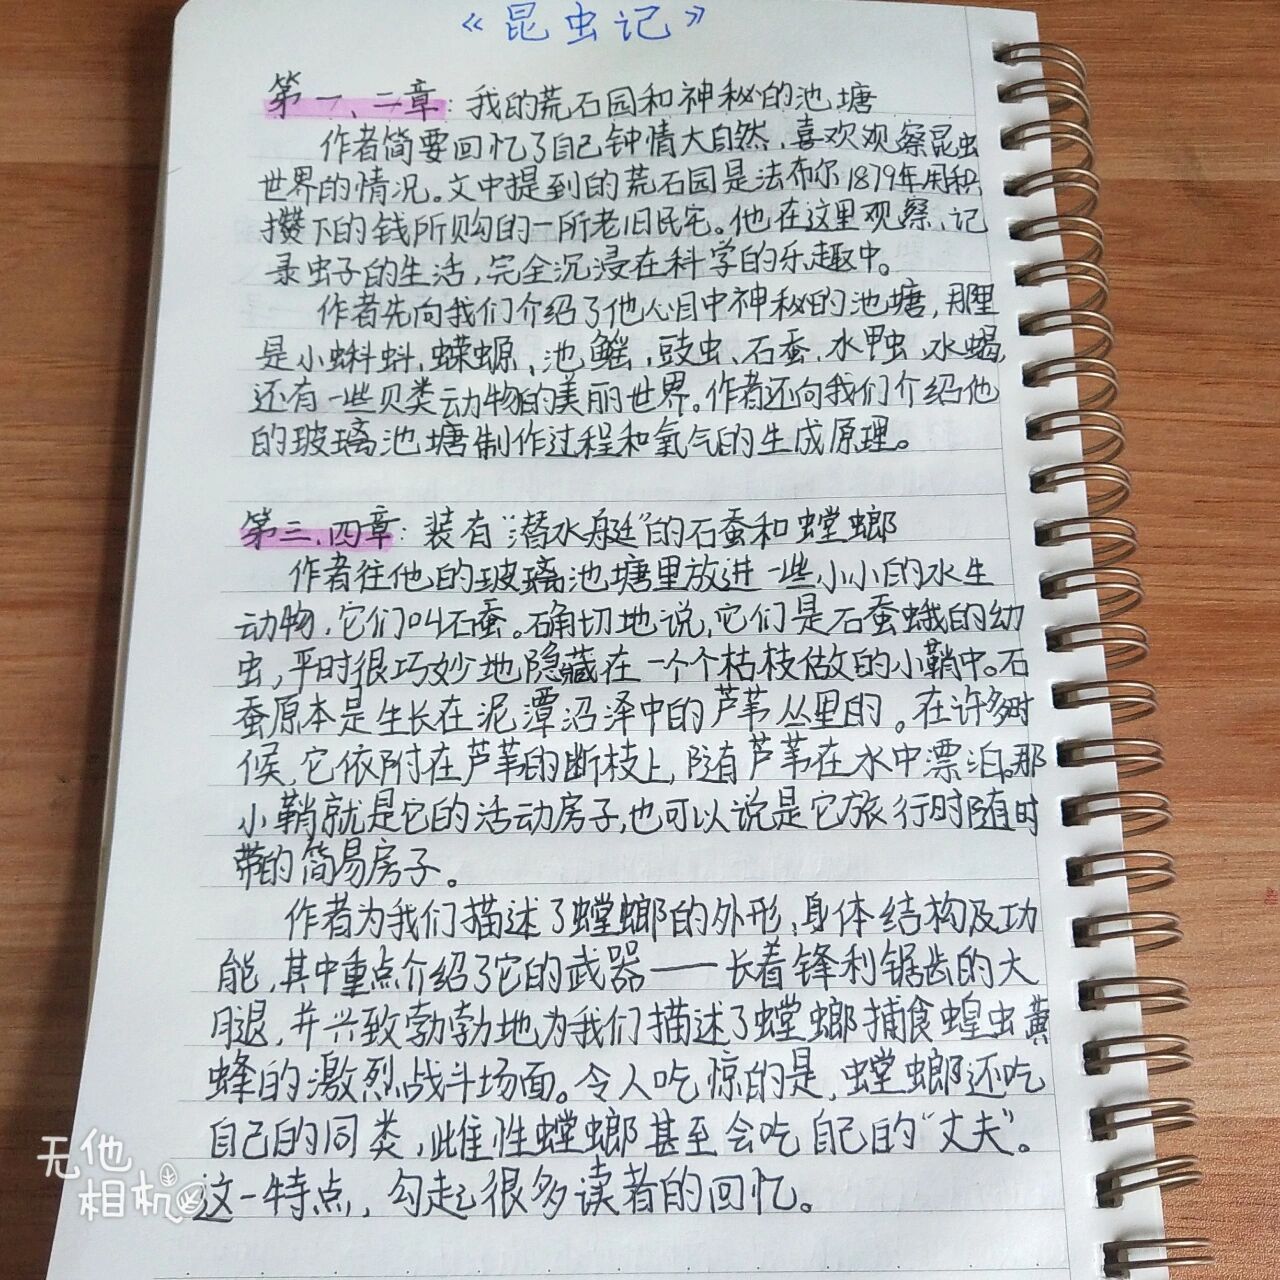 《昆虫记》
第一、二章：我的荒石园和神秘的池塘
作者简要回忆了自己钟情大自然，喜欢观察昆虫
世界的情况。文中提到的荒石园是法布尔1879年用积
攒下的钱所购的一所老旧民宅。他在这里观察、记
录虫子的生活，完全沉浸在科学的乐趣中。
作者先向我们介绍了他心目中神秘的池塘，那里
是小蝌蚪，蝾螈、池鳐，豉虫、石蚕，水甲虫，水蝎，
还有一些贝类动物的美丽世界。作者还向我们介绍他
的玻璃池塘制作过程和氧气的生成原理。
第三、四章：装有“潜水艇”的石蚕和螳螂
作者往他的玻璃池塘里放进一些小小的水生
动物，它们叫石蚕。确切地说，它们是石蚕蛾的幼
虫，平时很巧妙地隐藏在一个个枯枝做的小鞘中。石
蚕原本是生长在泥潭沼泽中的芦苇丛里的。在许多时
候，它依附在芦苇的断枝上，随芦苇在水中漂泊。那
小鞘就是它的活动房子，也可以说是它旅行时随时
带的简易房子。
作者为我们描述了螳螂的外形，身体结构及功
能，其中重点介绍了它的武器——长着锋利锯齿的大
腿，并兴致勃勃地为我们描述了螳螂捕食蝗虫黄
蜂的激烈战斗场面。令人吃惊的是，螳螂还吃
自己的同类，雌性螳螂甚至会吃自己的“丈夫”。
这一特点，勾起很多读者的回忆。
无他
相机